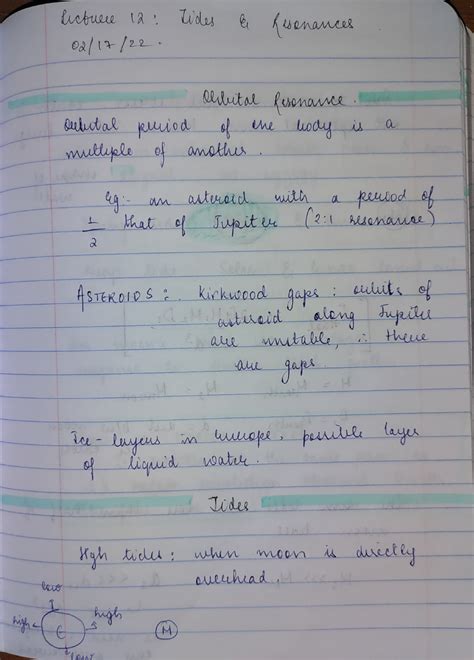 Lecture 12: Tides & Resonances
02/17/22.
Orbital Resonance.
Orbital period of one body is a
multiple of another.
Eg:- an asteroid with a period of
1/2 that of Jupiter (2:1 resonance)
ASTEROIDS:- Kirkwood gaps: orbits of
asteroid along Jupiter
are unstable, ∴ there
are gaps.
Ice-layers in Europe, possible layer
of liquid water.
Tides
High tides: when moon is directly
overhead.
low
high
high
E
M
low